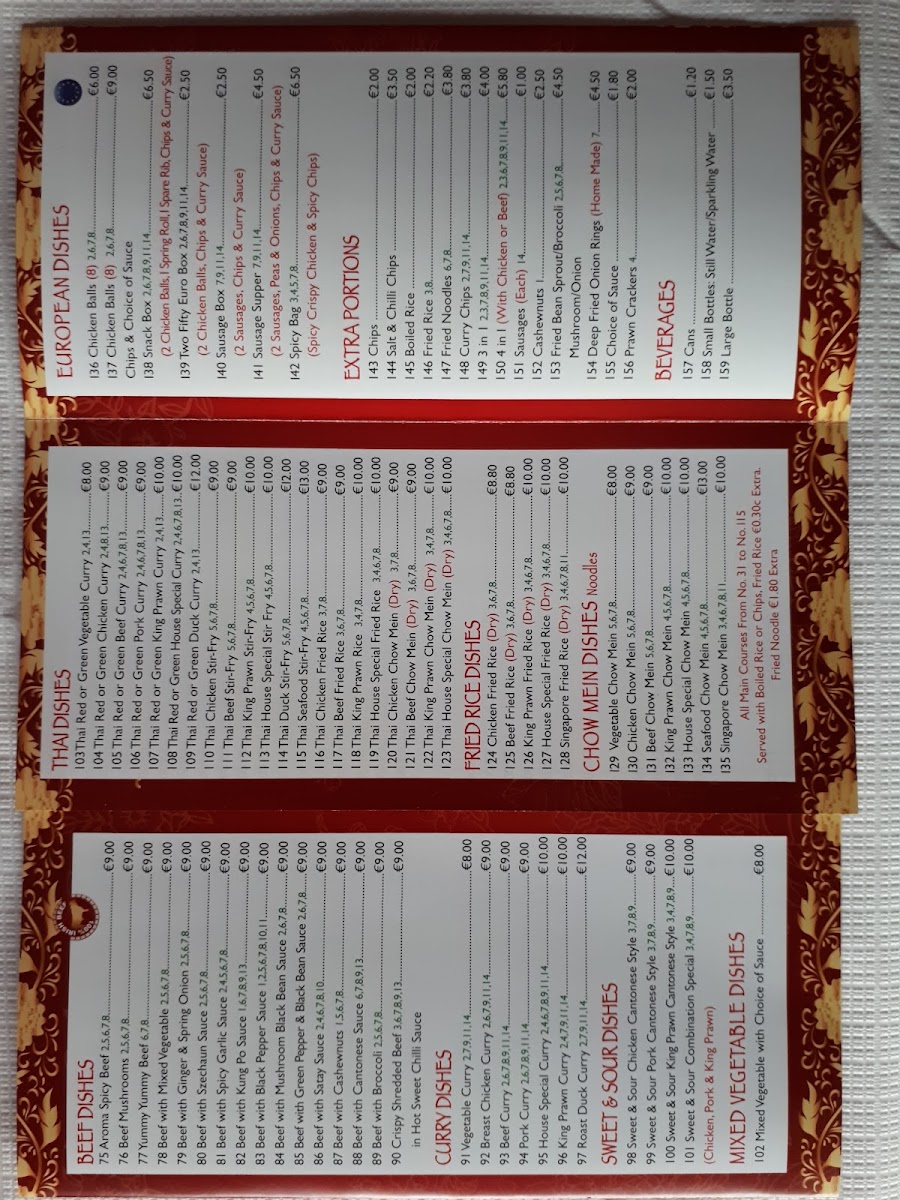 BEEF DISHES
100% IRISH BEEF
75 Aroma Spicy Beef 2,5,6,7,8 €9.00
76 Beef Mushrooms 2,5,6,7,8 €9.00
77 Yummy Yummy Beef 6,7,8 €9.00
78 Beef with Mixed Vegetable 2,5,6,7,8 €9.00
79 Beef with Ginger & Spring Onion 2,5,6,7,8 €9.00
80 Beef with Szechaun Sauce 2,5,6,7,8 €9.00
81 Beef with Spicy Garlic Sauce 2,4,5,6,7,8 €9.00
82 Beef with Kung Po Sauce 1,6,7,8,9,13 €9.00
83 Beef with Black Pepper Sauce 1,2,5,6,7,8,10,11 €9.00
84 Beef with Mushroom Black Bean Sauce 2,6,7,8 €9.00
85 Beef with Green Pepper & Black Bean Sauce 2,6,7,8 €9.00
86 Beef with Satay Sauce 2,4,6,7,8,10 €9.00
87 Beef with Cashewnuts 1,5,6,7,8 €9.00
88 Beef with Cantonese Sauce 6,7,8,9,13 €9.00
89 Beef with Broccoli 2,5,6,7,8 €9.00
90 Crispy Shredded Beef 3,6,7,8,9,13 €9.00
in Hot Sweet Chilli Sauce
CURRY DISHES
91 Vegetable Curry 2,7,9,11,14 €8.00
92 Breast Chicken Curry 2,6,7,9,11,14 €9.00
93 Beef Curry 2,6,7,8,9,11,14 €9.00
94 Pork Curry 2,6,7,8,9,11,14 €9.00
95 House Special Curry 2,4,6,7,8,9,11,14 €10.00
96 King Prawn Curry 2,4,7,9,11,14 €10.00
97 Roast Duck Curry 2,7,9,11,14 €12.00
SWEET & SOUR DISHES
98 Sweet & Sour Chicken Cantonese Style 3,7,8,9 €9.00
99 Sweet & Sour Pork Cantonese Style 3,7,8,9 €9.00
100 Sweet & Sour King Prawn Cantonese Style 3,4,7,8,9 €10.00
101 Sweet & Sour Combination Special 3,4,7,8,9 €10.00
(Chicken, Pork & King Prawn)
MIXED VEGETABLE DISHES
102 Mixed Vegetable with Choice of Sauce €8.00
THAI DISHES
103 Thai Red or Green Vegetable Curry 2,4,13 €8.00
104 Thai Red or Green Chicken Curry 2,4,8,13 €9.00
105 Thai Red or Green Beef Curry 2,4,6,7,8,13 €9.00
106 Thai Red or Green Pork Curry 2,4,6,7,8,13 €9.00
107 Thai Red or Green King Prawn Curry 2,4,13 €10.00
108 Thai Red or Green House Special Curry 2,4,6,7,8,13 €10.00
109 Thai Red or Green Duck Curry 2,4,13 €12.00
110 Thai Chicken Stir-Fry 5,6,7,8 €9.00
111 Thai Beef Stir-Fry 5,6,7,8 €9.00
112 Thai King Prawn Stir-Fry 4,5,6,7,8 €10.00
113 Thai House Special Stir Fry 4,5,6,7,8 €10.00
114 Thai Duck Stir-Fry 5,6,7,8 €12.00
115 Thai Seafood Stir-Fry 4,5,6,7,8 €13.00
116 Thai Chicken Fried Rice 3,7,8 €9.00
117 Thai Beef Fried Rice 3,6,7,8 €9.00
118 Thai King Prawn Rice 3,4,7,8 €10.00
119 Thai House Special Fried Rice 3,4,6,7,8 €10.00
120 Thai Chicken Chow Mein (Dry) 3,7,8 €9.00
121 Thai Beef Chow Mein (Dry) 3,6,7,8 €9.00
122 Thai King Prawn Chow Mein (Dry) 3,4,7,8 €10.00
123 Thai House Special Chow Mein (Dry) 3,4,6,7,8 €10.00
FRIED RICE DISHES
124 Chicken Fried Rice (Dry) 3,6,7,8 €8.80
125 Beef Fried Rice (Dry) 3,6,7,8 €8.80
126 King Prawn Fried Rice (Dry) 3,4,6,7,8 €10.00
127 House Special Fried Rice (Dry) 3,4,6,7,8 €10.00
128 Singapore Fried Rice (Dry) 3,4,6,7,8,11 €10.00
CHOW MEIN DISHES Noodles
129 Vegetable Chow Mein 5,6,7,8 €8.00
130 Chicken Chow Mein 5,6,7,8 €9.00
131 Beef Chow Mein 5,6,7,8 €9.00
132 King Prawn Chow Mein 4,5,6,7,8 €10.00
133 House Special Chow Mein 4,5,6,7,8 €10.00
134 Seafood Chow Mein 4,5,6,7,8 €13.00
135 Singapore Chow Mein 3,4,6,7,8,11 €10.00
All Main Courses From No. 31 to No.115
Served with Boiled Rice or Chips, Fried Rice €0.30c Extra.
Fried Noodle €1.80 Extra
EUROPEAN DISHES
136 Chicken Balls (8) 2,6,7,8 €6.00
137 Chicken Balls (8) 2,6,7,8 €9.00
Chips & Choice of Sauce
138 Snack Box 2,6,7,8,9,11,14 €6.50
(2 Chicken Balls, 1 Spring Roll, 1 Spare Rib, Chips & Curry Sauce)
139 Two Fifty Euro Box 2,6,7,8,9,11,14 €2.50
(2 Chicken Balls, Chips & Curry Sauce)
140 Sausage Box 7,9,11,14 €2.50
(2 Sausages, Chips & Curry Sauce)
141 Sausage Supper 7,9,11,14 €4.50
(2 Sausages, Peas & Onions, Chips & Curry Sauce)
142 Spicy Bag 3,4,5,7,8 €6.50
(Spicy Crispy Chicken & Spicy Chips)
EXTRA PORTIONS
143 Chips €2.00
144 Salt & Chilli Chips €3.50
145 Boiled Rice €2.00
146 Fried Rice 3,8 €2.20
147 Fried Noodles 6,7,8 €3.80
148 Curry Chips 2,7,9,11,14 €3.80
149 3 in 1 2,3,7,8,9,11,14 €4.00
150 4 in 1 (With Chicken or Beef) 2,3,6,7,8,9,11,14 €5.80
151 Sausages (Each) 14 €1.00
152 Cashewnuts 1 €2.50
153 Fried Bean Sprout/Broccoli 2,5,6,7,8 €4.50
Mushroom/Onion
154 Deep Fried Onion Rings (Home Made) 7 €4.50
155 Choice of Sauce €1.80
156 Prawn Crackers 4 €2.00
BEVERAGES
157 Cans €1.20
158 Small Bottles: Still Water/Sparkling Water €1.50
159 Large Bottle €3.50